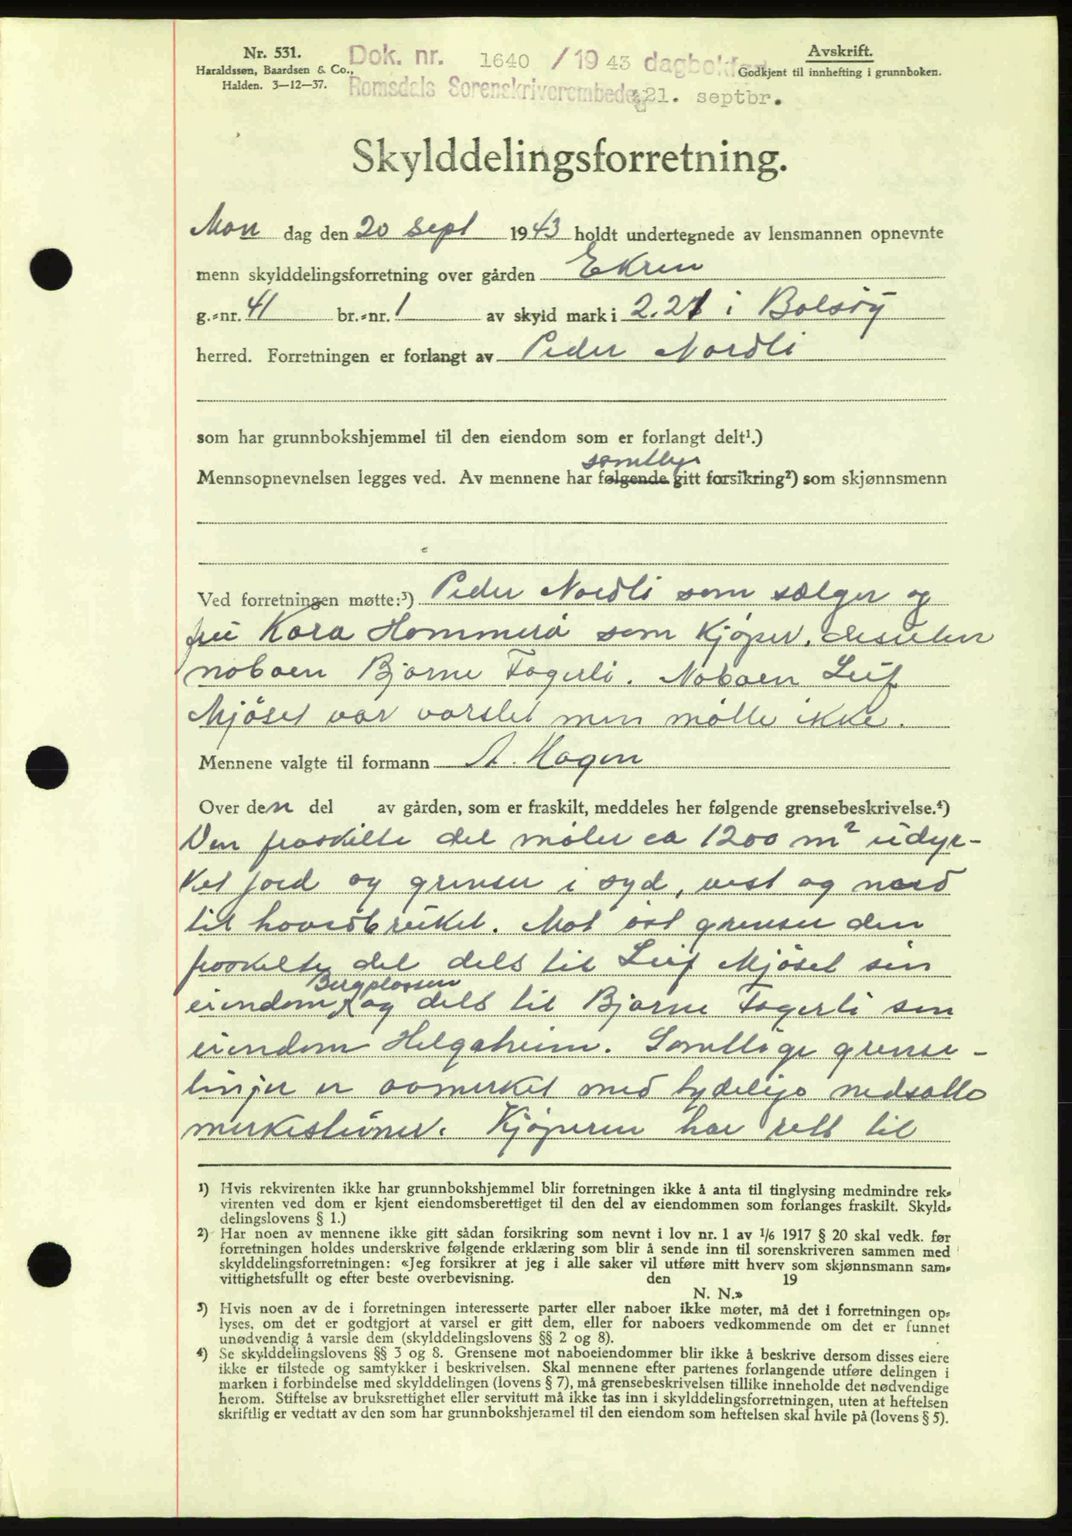 Nr. 531.
Haraldssøn, Baardsen & Co.,
Halden. 3—12—37.
Dok. nr. 1640 / 19 43 dagbokført
Romsdals Sorenskriverembede 21. septbr.
Avskrift.
Godkjent til innhefting i grunnboken.
Skylddelingsforretning.
Mon dag den 20 sept 1943 holdt undertegnede av lensmannen opnevnte
menn skylddelingsforretning over gården Ekren
g.-nr. 41 br.-nr. 1 av skyld mark i 2.21 i Bolsöy
herred. Forretningen er forlangt av Peder Nordli
som har grunnbokshjemmel til den eiendom som er forlangt delt¹.)
samtlige
Mennsopnevnelsen legges ved. Av mennene har følgende gitt forsikring²) som skjønnsmenn
Ved forretningen møtte:³) Peder Nordli som sælger og
fru Kara Hammerö som kjöper, desuten
naboen Bjarne Fagerli. Naboen Leif
Mjöset var varslet men mötte ikke.
Mennene valgte til formann A. Hagen
Over den del av gården, som er fraskilt, meddeles her følgende grensebeskrivelse.⁴)
Den fraskilte del måler ca 1200 m² udyr-
ket jord og grenser i syd, vest og nord
til hovedbruket. Mot öst grenser den
fraskilte del dels til Leif Mjöset sin
Bergplassen
eiendom og dels til Bjarne Fagerli sin
eiendom Helgaheim. Samtlige grense-
linjer er avmerket med tydelige nedsatte
merkestener. Kjöperen har rett til
¹) Hvis rekvirenten ikke har grunnbokshjemmel blir forretningen ikke å anta til tinglysing medmindre rek-
virenten ved dom er kjent eiendomsberettiget til den del av eiendommen som forlanges fraskilt. Skyld-
delingslovens § 1.)
²) Har noen av mennene ikke gitt sådan forsikring som nevnt i lov nr. 1 av 1/6 1917 § 20 skal vedk. før
forretningen holdes underskrive følgende erklæring som blir å sende inn til sorenskriveren sammen med
skylddelingsforretningen: «Jeg forsikrer at jeg i alle saker vil utføre mitt hverv som skjønnsmann sam-
vittighetsfullt og efter beste overbevisning. den 19
N. N.»
³) Hvis noen av de i forretningen interesserte parter eller naboer ikke møter, må det i forretningen op-
lyses, om det er godtgjort at varsel er gitt dem, eller for naboers vedkommende om det er funnet
unødvendig å varsle dem (skylddelingslovens §§ 2 og 8).
⁴) Se skylddelingslovens §§ 3 og 8. Grensene mot naboeiendommer blir ikke å beskrive dersom disses eiere
ikke er tilstede og samtykker i beskrivelsen. Skal mennene efter partenes forlangende utføre delingen i
marken i forbindelse med skylddelingen (lovens § 7), må grensebeskrivelsen tillike inneholde det nødvendige
herom. Stiftelse av bruksrettighet eller servitutt må ikke tas inn i skylddelingsforretningen, uten at heftelsen
skriftlig er vedtatt av den som har grunnbokshjemmel til den eiendom som heftelsen skal hvile på (lovens § 5).